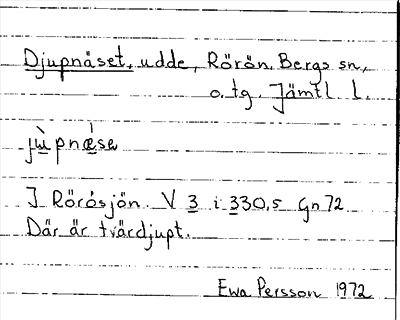 Djupnäset, udde, Rörön, Bergs sn,
o. tg. Jämtl l.
jùpnǽse
I Rörösjön. V 3 i 330,5 Gn 72
Där är tvärdjupt.
Ewa Persson 1972